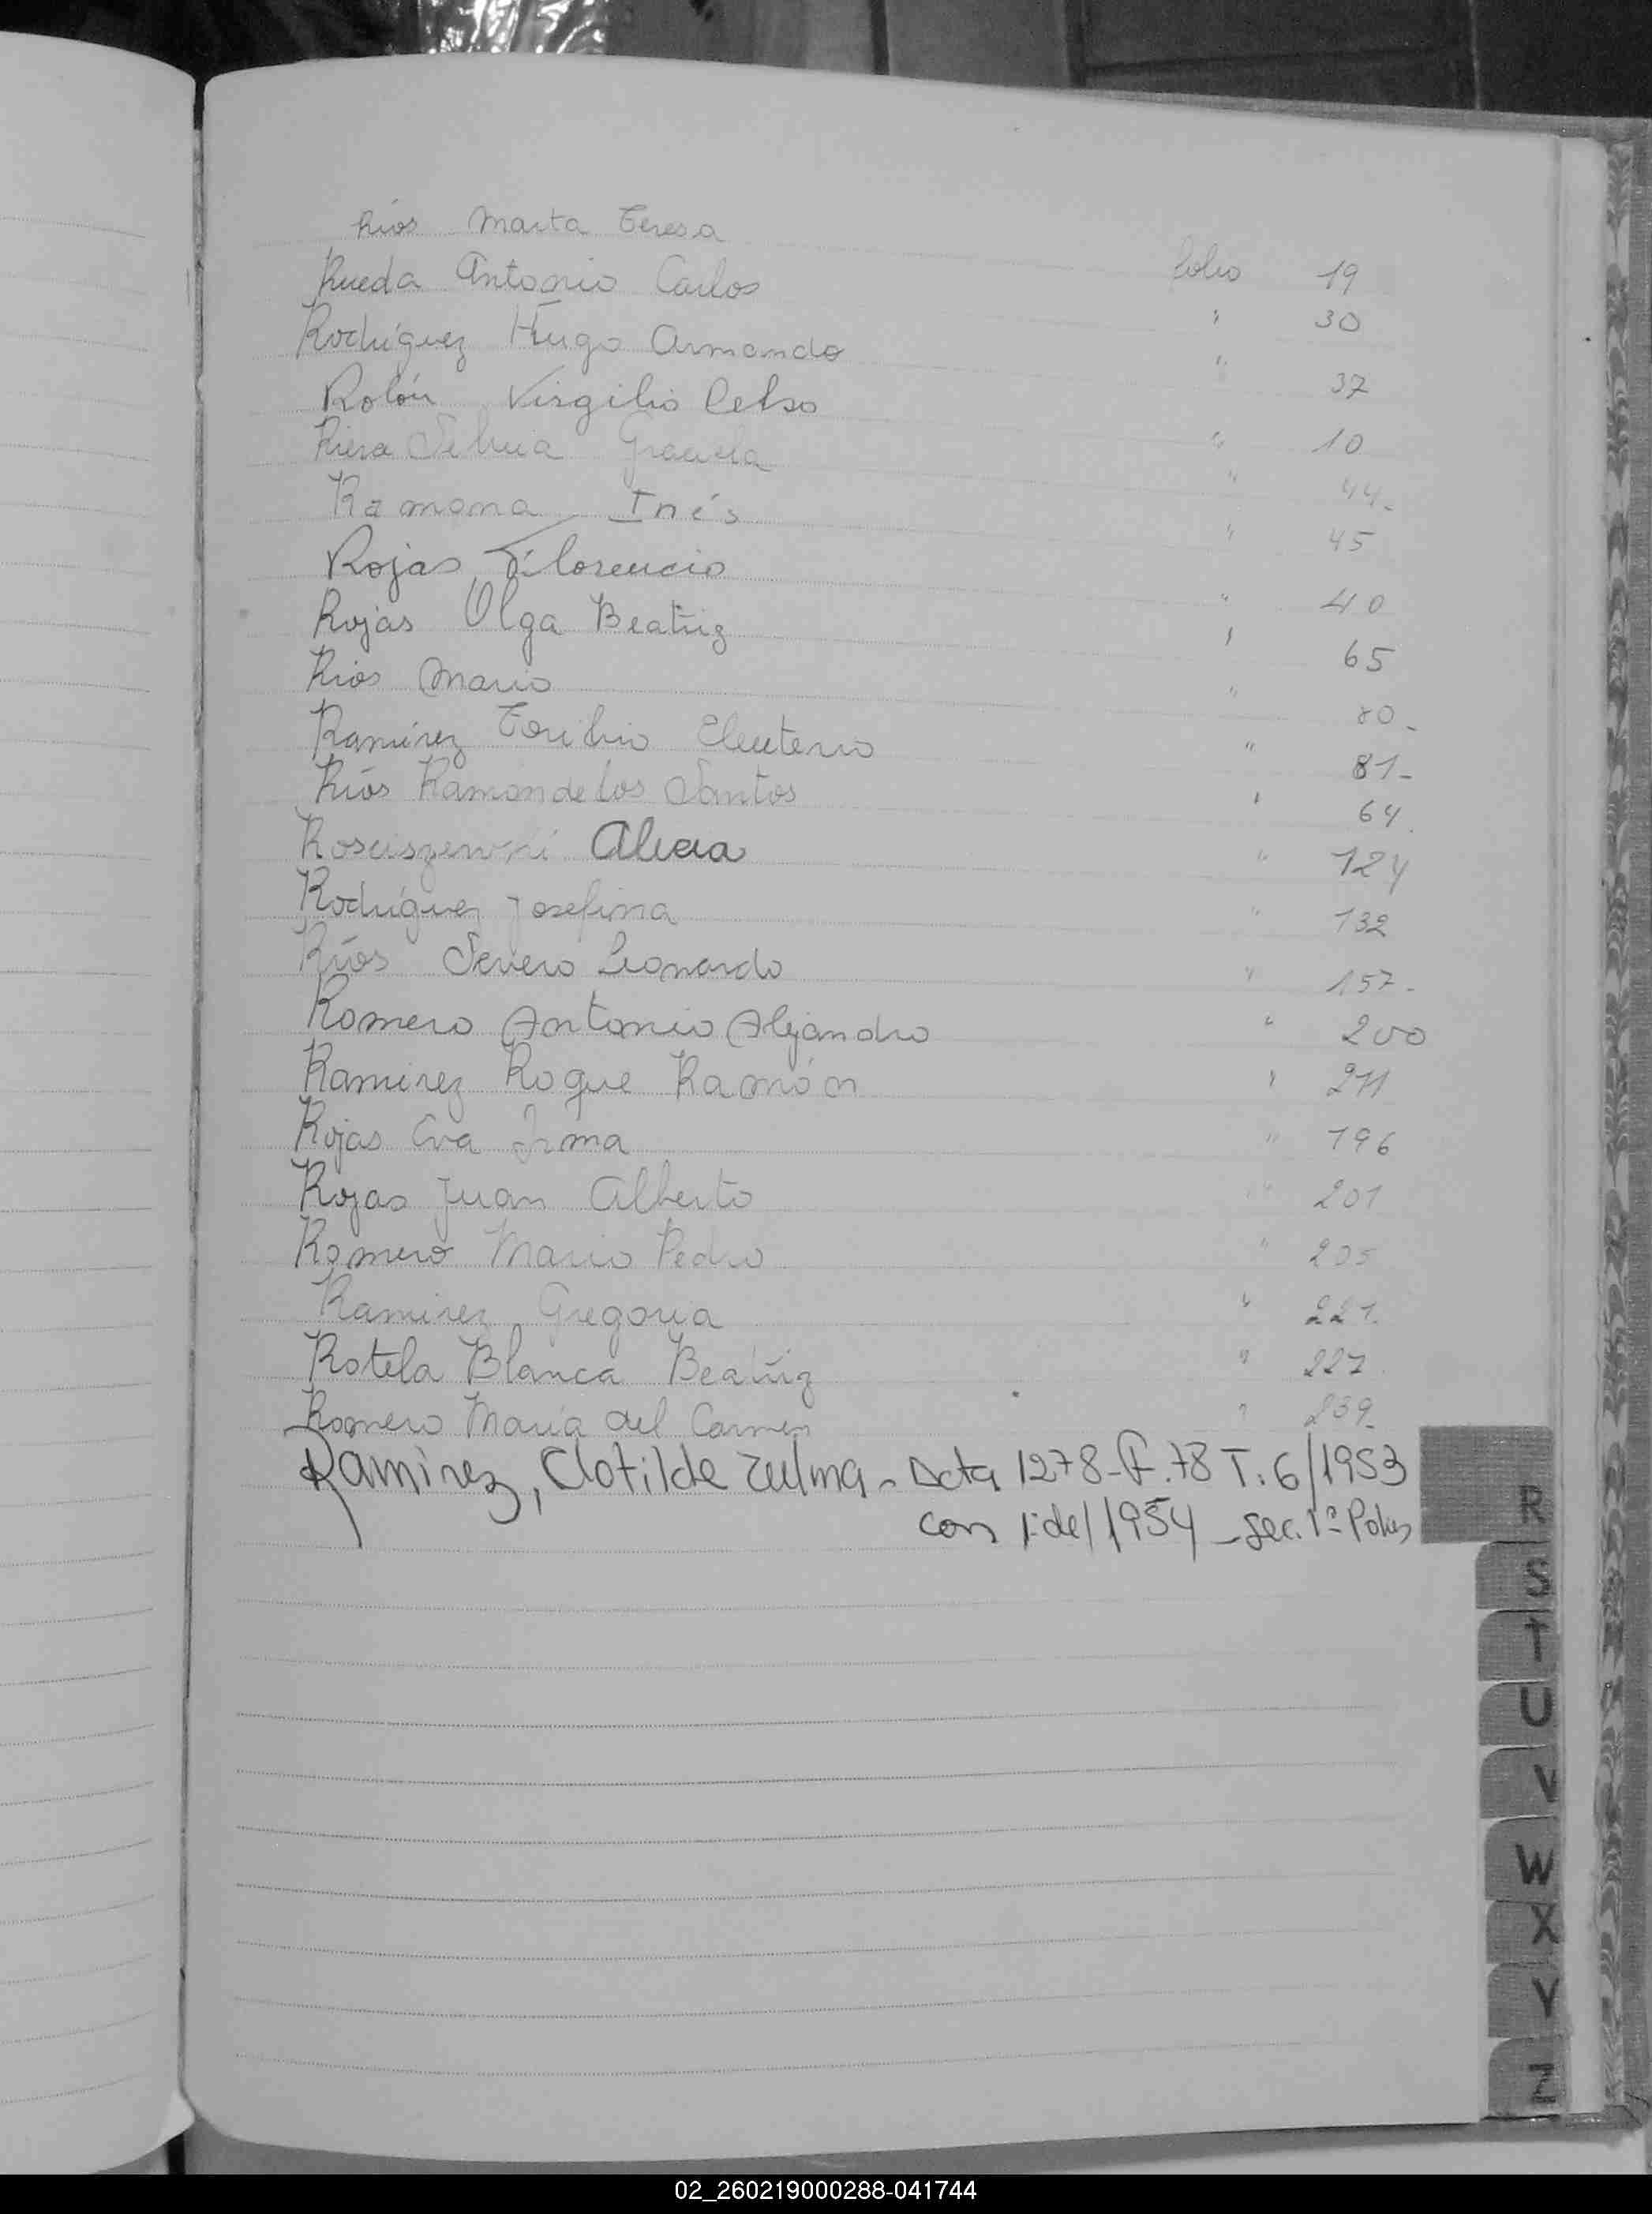 Ríos Marta Teresa Folio 19
Rueda Antonio Carlos " 30
Rodríguez Hugo Armando " 37
Rolón Virgilio Celso " 10
Riera Silvia Graciela " 44-
Ramona Inés " 45
Rojas Florencio " 40
Rojas Olga Beatriz " 65
Rios Mario " 80-
Ramírez Toribio Eleuterio " 81-
Ríos Ramon de los Santos " 64
Rosciszewski Alicia " 124
Rodríguez Josefina " 132
Ríos Severo Leonardo " 157-
Romero Antonio Alejandro " 200
Ramirez Roque Ramón " 211
Rojas Eva Irma " 196
Rojas Juan Alberto " 201
Romero Mario Pedro " 205
Ramirez Gregoria " 221
Rotela Blanca Beatriz " 227
Romero María del Carmen " 239-
Ramirez, Clotilde Zulma - Acta 1278-F.78 T.6/1953
con 1º del 1954 - Sec. 1ª
R
S
T
U
V
W
X
Y
Z
02_260219000288-041744